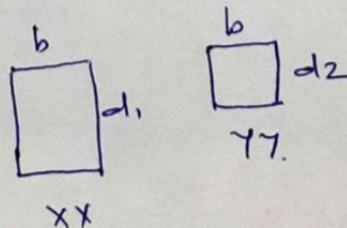 b
d1
xx
b
d2
yy.